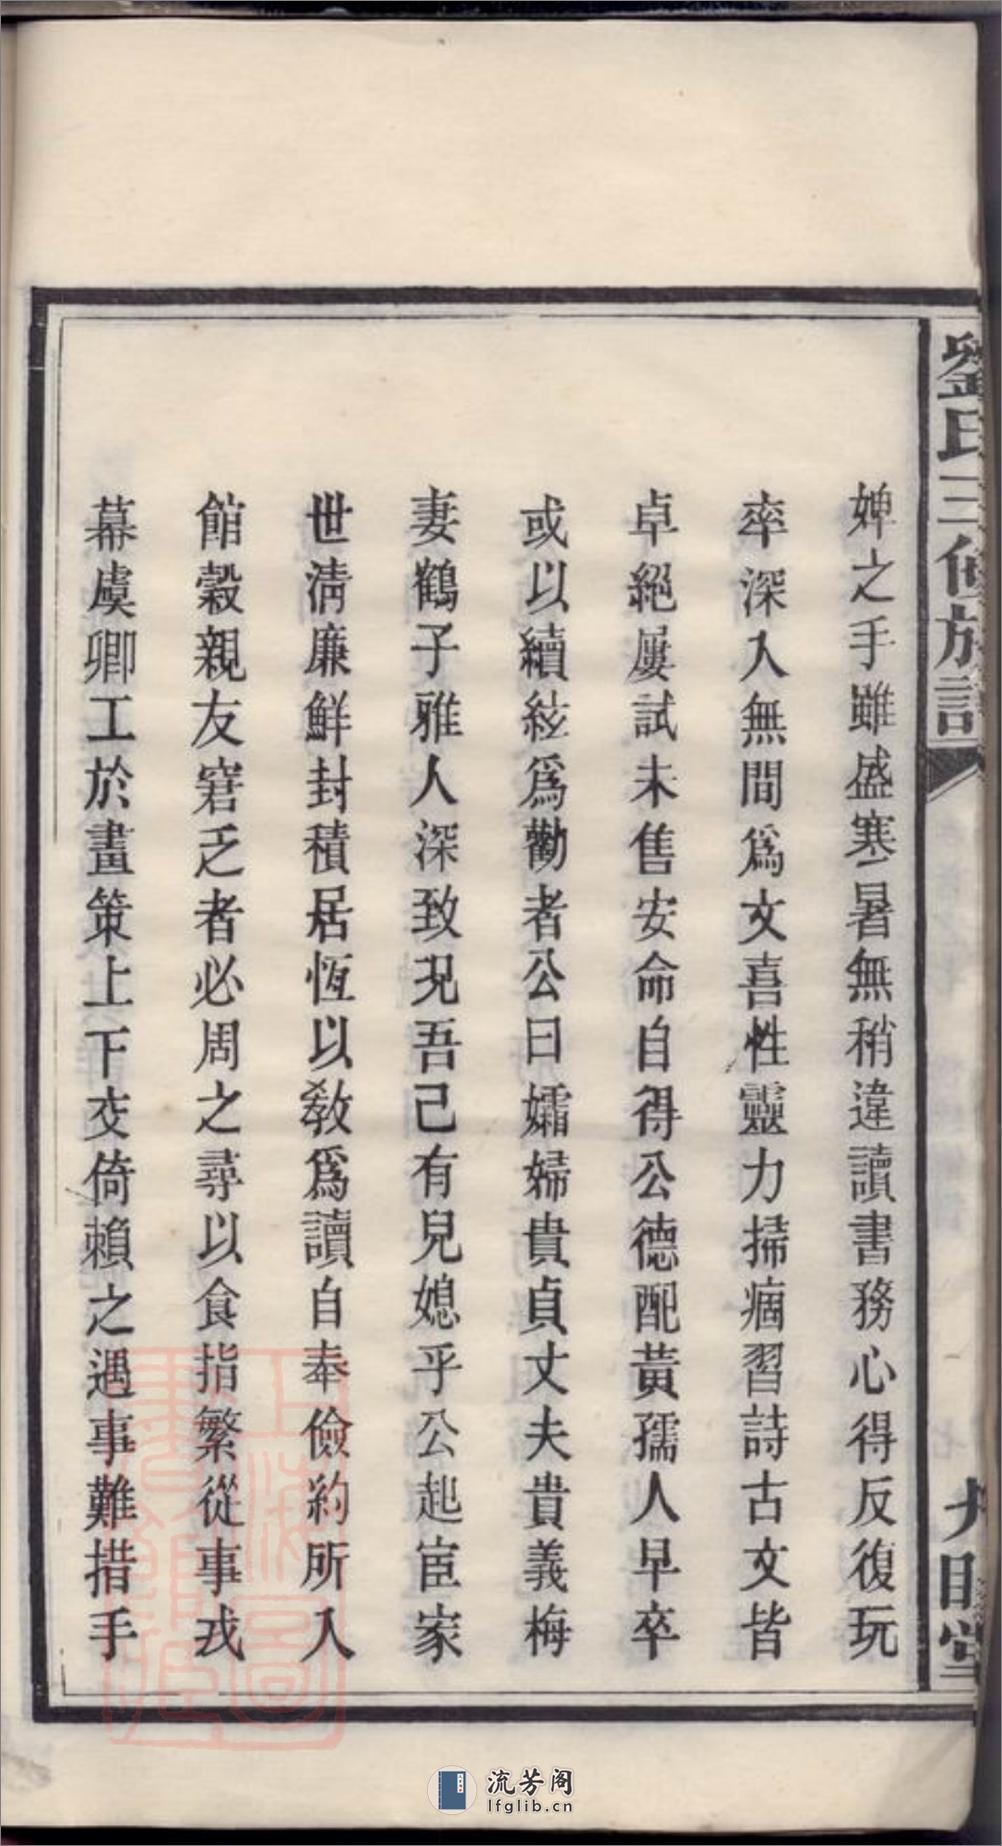 劉氏三修族譜
婢之手雖盛寒暑無稍違讀書務心得反復玩
率深入無間爲文喜性靈力掃痼習詩古文皆
卓絕屢試未售安命自得公德配黃孺人早卒
或以續絃爲勸者公曰孀婦貴貞丈夫貴義梅
妻鶴子雅人深致況吾已有兒媳乎公起宦家
世淸廉鮮封積居恆以敎爲讀自奉儉約所入
館穀親友窘乏者必周之尋以食指繁從事戎
幕虞卿工於畫策上下交倚賴之遇事難措手
上海圖書館藏
流芳阁
lfglib.cn